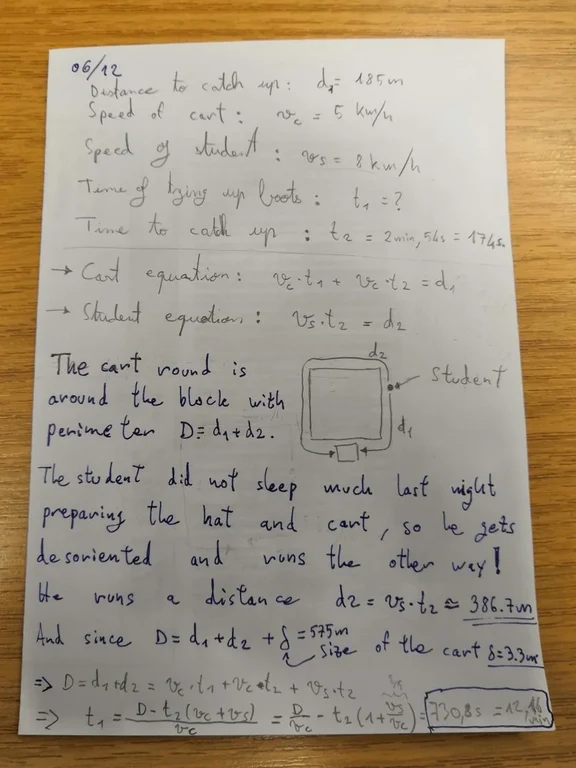 06/12
Distance to catch up: d₁ = 185m
Speed of cart: v_c = 5 km/h
Speed of student: v_s = 8 km/h
Time of tying up boots: t₁ = ?
Time to catch up: t₂ = 2min, 54s = 174s
→ Cart equation: v_c·t₁ + v_c·t₂ = d₁
→ Student equation: v_s·t₂ = d₂
The cart round is
around the block with
perimeter D = d₁+d₂.
d₂
Student
d₁
The student did not sleep much last night
preparing the hat and cart, so he gets
desoriented and runs the other way!
He runs a distance d2 = v_s·t₂ ≈ 386.7m
And since D = d₁+d₂+δ = 575m
size of the cart δ = 3.3m
⇒ D = d₁+d₂ = v_c·t₁ + v_c·t₂ + v_s·t₂
⇒ t₁ = (D - t₂(v_c + v_s))/v_c = D/v_c - t₂(1 + v_s/v_c) = 730,8s = 12,16 min